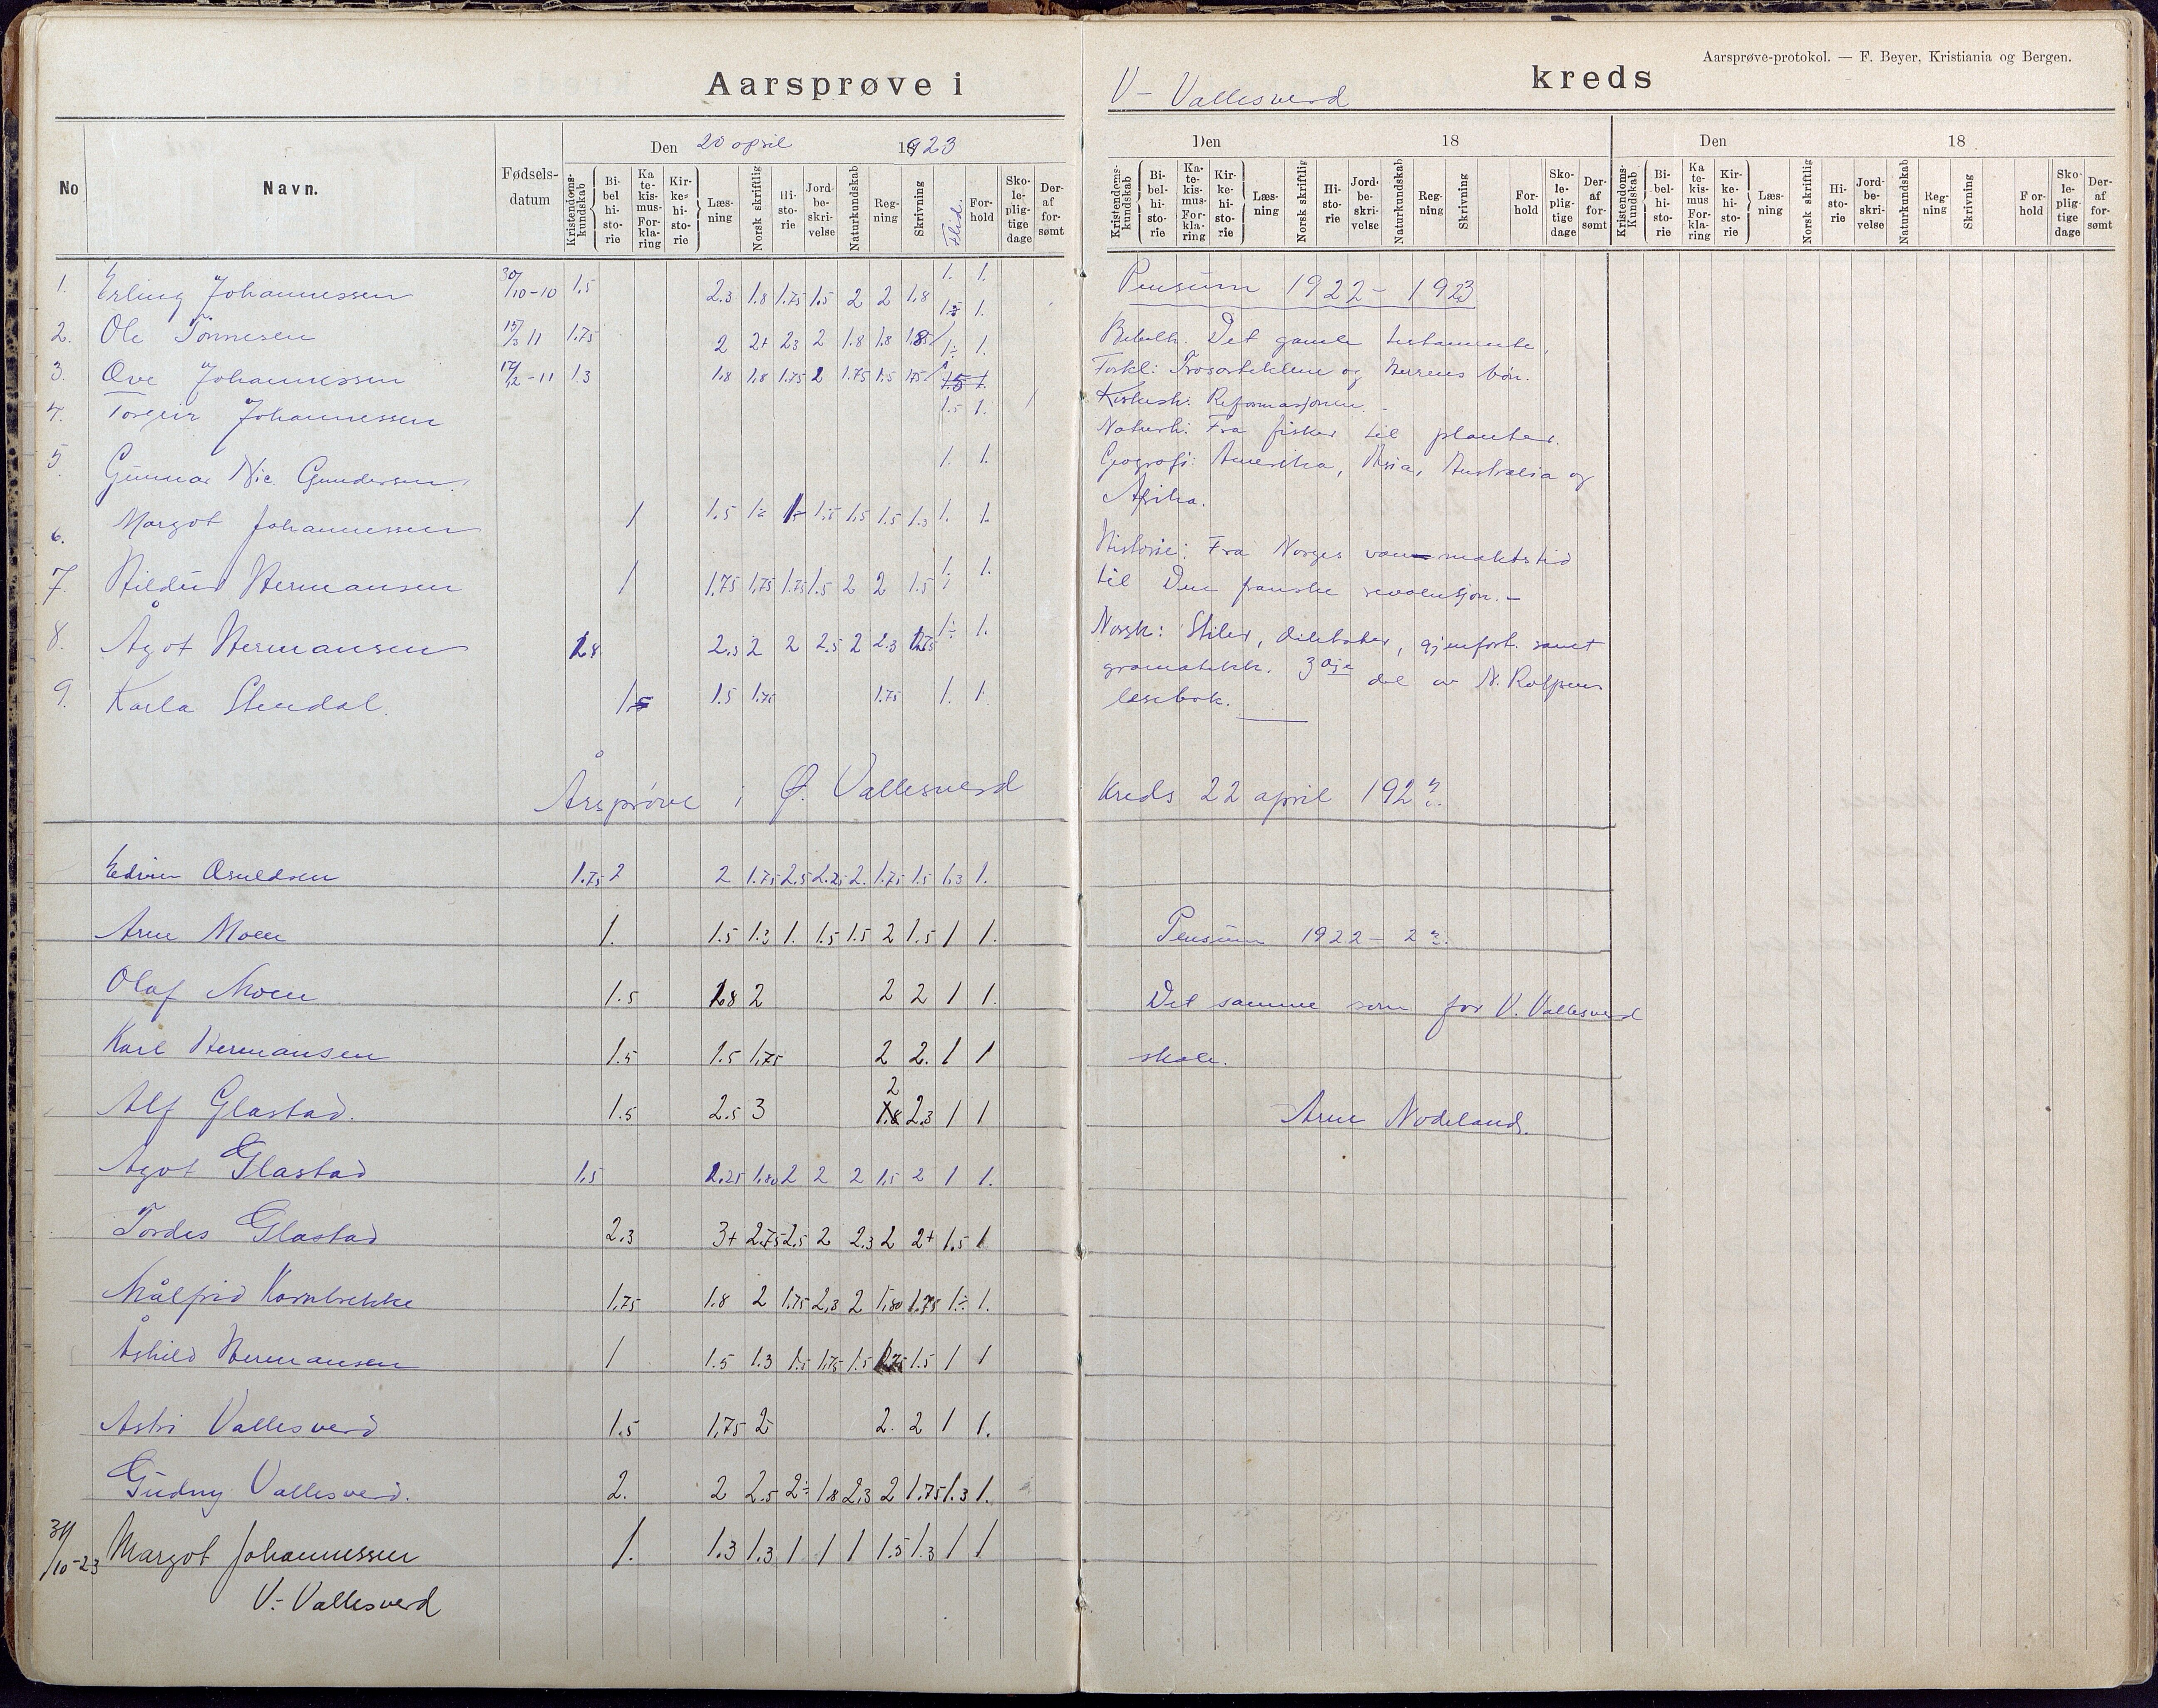 Aarsprøve i V- Vallesverd kreds
Aarsprøve-protokol. — F. Beyer, Kristiania og Bergen.
No Navn. Fødsels-datum Den 20 april 1923
Kristendoms-kundskab Bibelhistorie Katekismus-Forklaring Kirkehistorie Læsning Norsk skriftlig Historie Jordbeskrivelse Naturkundskab Regning Skrivning Flid. Forhold Skolepligtige dage Deraf forsømt
Den 18
Kristendoms-kundskab Bibelhistorie Katekismus-Forklaring Kirkehistorie Læsning Norsk skriftlig Historie Jordbeskrivelse Naturkundskab Regning Skrivning Forhold Skolepligtige dage Deraf forsømt
Den 18
Kristendoms-Kundskab Bibelhistorie Katekismus Forklaring Kirkehistorie Læsning Norsk skriftlig Historie Jordbeskrivelse Naturkundskab Regning Skrivning Forhold Skolepligtige dage Deraf forsømt
1. Erling Johannessen 30/10-10 1.5 2.3 1.8 1.75 1.5 2 2 1.8 1. 1.
2. Ole Tönnesen 15/3 11 1.75 2 2+ 2.3 2 1.8 1.8 1.85 1.
3. Ove Johannessen 17/12-11 1.3 1.8 1.8 1.75 2 1.75 1.5 1.75 1.
4. Torgeir Johannessen 1.5 1.
5. Gunnar Nic. Gundersen. 1. 1.
6. Margot Johannessen 1 1.5 1.5 1.5 1.5 1.3 1. 1.
7. Hildur Hermansen 1 1.75 1.75 1.75 1.5 2 2 1.5 1. 1.
8. Ågot Hermansen 1.8 2.3 2 2 2.5 2 2.3 1.75 1÷ 1.
9. Karla Stendal. 1.5 1.5 1.75 1.75 1. 1.
Pensum 1922 - 1923
Bibelh. Det gamle testamente.
Forkl: Trosartiklene og Herrens bön.
Kirkesh: Reformasjonen. -
Naturh: Fra fisker til planter.
Geografi: Amerika, Asia, Australia og
Afrika.
Historie: Fra Norges vanmaktstid
til Den franske revolusjon. -
Norsk: Stiler, diktater, gjenfort. samt
gramatikk. 3dje del av N. Rolfsens
lesebok.
Årsprøve i Ø. Vallesverd Kreds 22 april 1923.
Edvin Osuldsen 1.75 2 2 1.75 2.5 2.25 2. 1.75 1.5 1.3 1.
Arne Moen 1. 1.5 1.3 1. 1.5 1.5 2 1.5 1 1.
Olaf Moen 1.5 1.8 2 2 2 1 1.
Karl Hermansen 1.5 1.5 1.75 2 2. 1 1
Alf Glastad. 1.5 2.5 3 2 1.8 2.3 1 1
Agot Glastad 1.5 2.25 1.80 2 2 2 1.5 2 1 1.
Tordis Glastad 2.3 3+ 2.75 2.5 2 2.3 2 2+ 1.5 1
Målfrid Kornbrekke 1.75 1.8 2 1.75 2.3 2 1.80 1.75 1÷ 1.
Åshild Hermansen 1 1.5 1.3 1.5 1.75 1.5 1.75 1.5 1 1
Astri Vallesverd 1.5 1.75 2 2. 2 1 1.
Gudny Vallesverd. 2. 2 2.5 2÷ 1.8 2.3 2 1.75 1.3 1.
31/10-23 Margot Johannessen 1. 1.3 1.3 1 1 1 1.5 1.3 1 1
V- Vallesverd
Pensum 1922 - 23.
Det samme som for V. Vallesverd
skole.
Arne Nodeland.